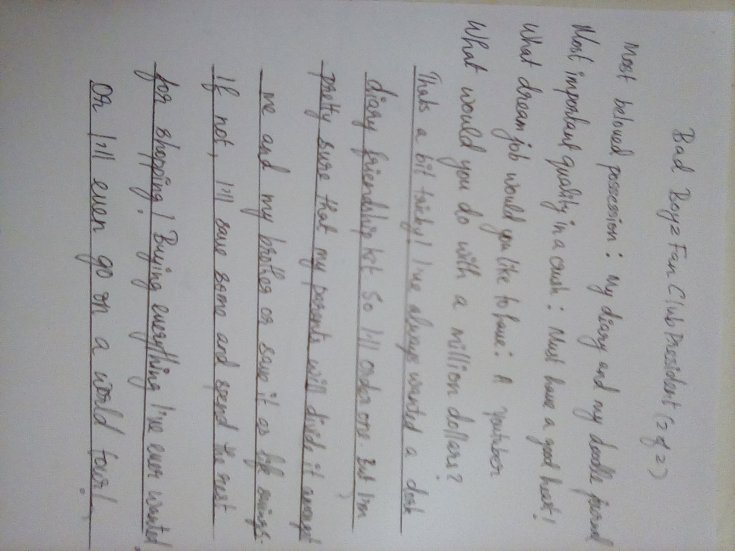 Bad Boyz Fan Club President (2 of 2)
Most beloved possession: My diary and my doodle journal
Most important quality in a crush: Must have a good heart!
What dream job would you like to have: A youtuber
What would you do with a million dollars?
Thats a bit tricky! I've always wanted a dork
diary friendship kit So I'll order one. But I'm
pretty sure that my parents will divide it amongst
me and my brother or save it as life savings.
If not, I'll save some and spend the rest
for shopping! Buying everything I've ever wanted,
Or I'll even go on a world tour!